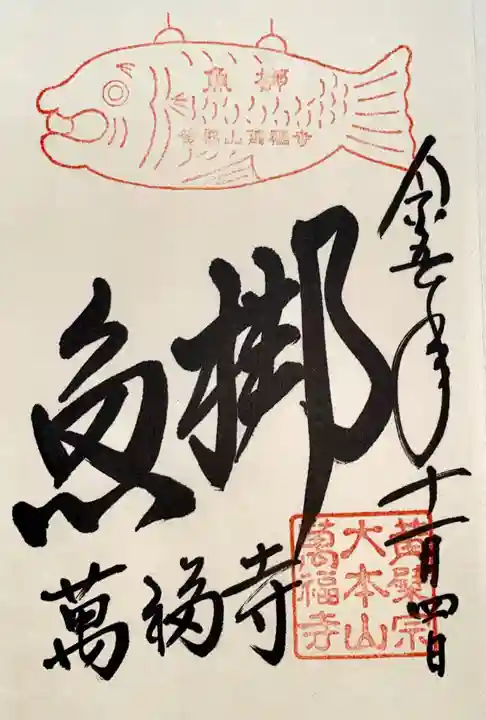 魚梆
黄檗山萬福寺
令和五年十一月四日
魚梆
萬福寺
黄檗宗
大本山
萬福寺